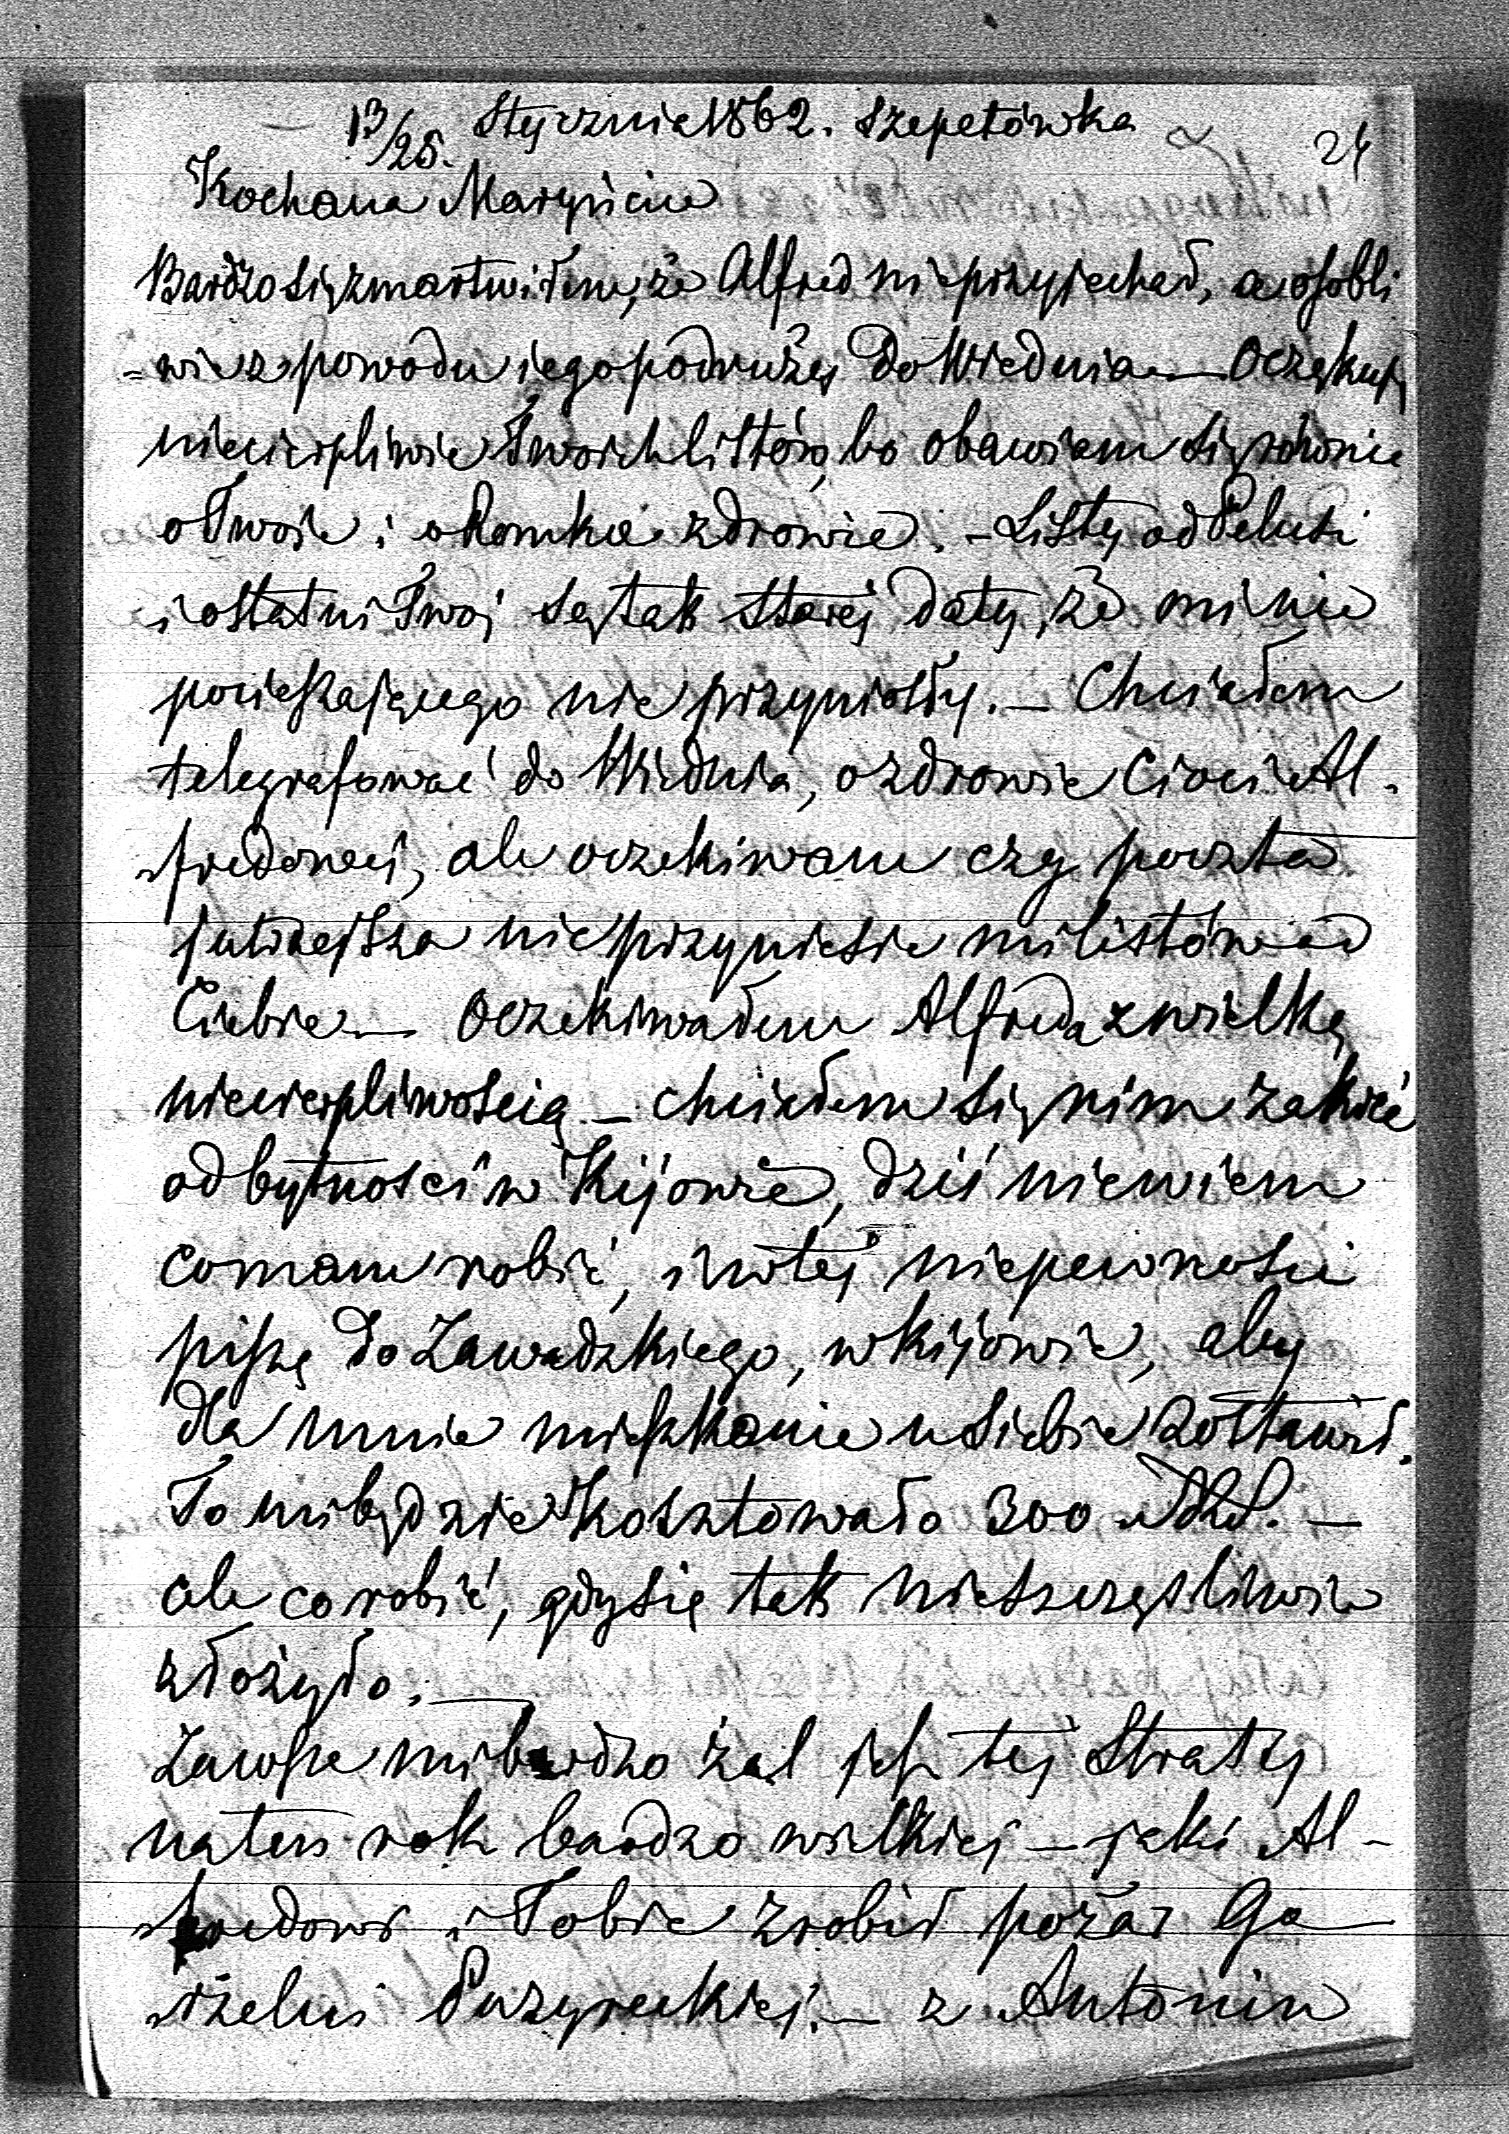 13/25. Stycznia 1862. Szepetówka
24
Kochana Maryniciu
Bardzo się zmartwiłem, że Alfred nie przyjechał, a osobli
=wie z powodu iego podruży do Wiednia — Oczekuję
niecierpliwie Twoich listów, bo obawiam się równie
o Twoie i o Romka zdrowie. – Listy od Pelusi
i ostatni Twoj są tak starej daty, że mi nic
pocieszającego nie przyniosły. – Chciałem
telegrafować do Wiednia, o zdrowie Cioci Al-
fredowej, ale oczekiwam czy poczta
jutrzejsza nie przyniesie mi listów od
Ciebie — Oczekiwałem Alfreda z wielką
niecierpliwością – chciałem się nim
od bytności w Kijowie, dziś niewiem
co mam robić, i w tej niepewności
piszę do Zawadzkiego, w Kijowie, aby
dla mnie mieszkanie u siebie zostawił.
To mi będzie kosztowało 300 –
ale co robić, gdy się tak nieszczęśliwie
złożyło. —
Zawsze mi bardzo żal jest tej straty
na ten rok bardzo wielkiej – jaki Al-
fredowi i Tobie zrobił pożar Go
rzelni – z Antonin